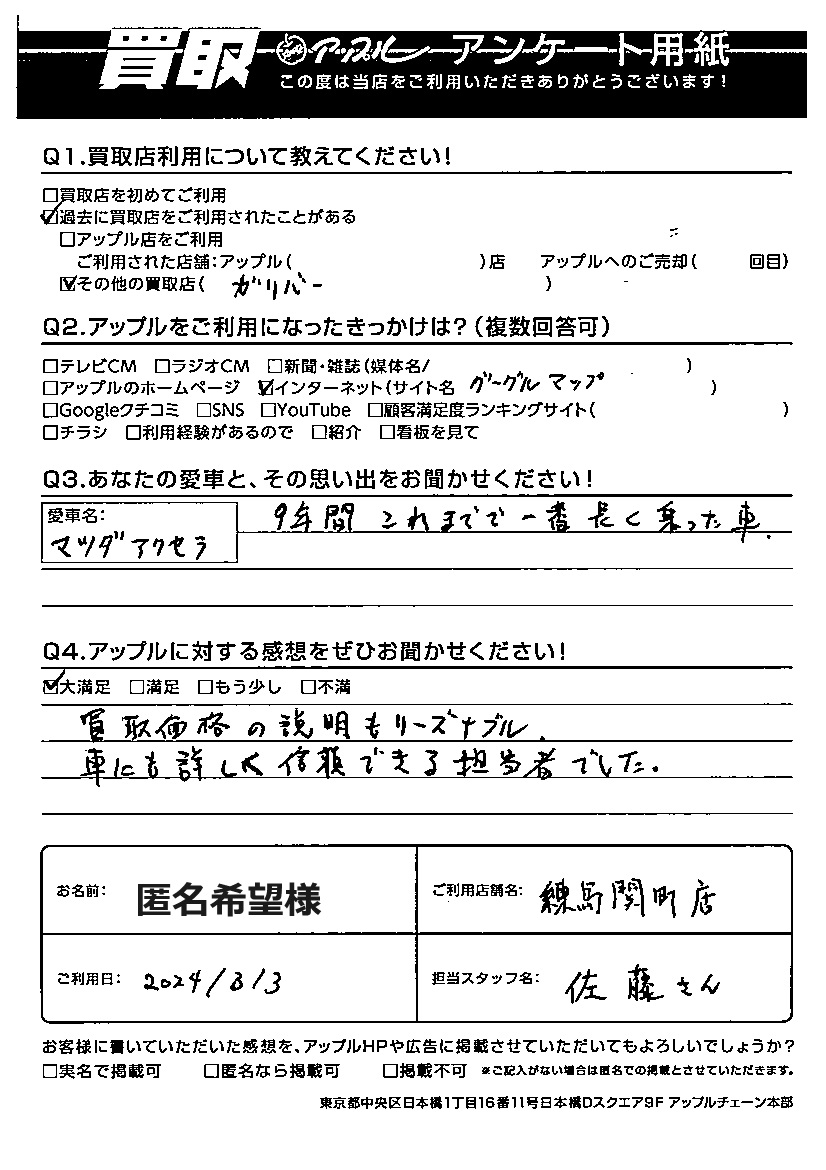 買取 アップル アンケート用紙
この度は当店をご利用いただきありがとうございます!
Q1.買取店利用について教えてください!
□買取店を初めてご利用
☑過去に買取店をご利用されたことがある
□アップル店をご利用
ご利用された店舗:アップル( )店 アップルへのご売却( 回目)
☑その他の買取店( ガリバー )
Q2.アップルをご利用になったきっかけは?(複数回答可)
□テレビCM □ラジオCM □新聞・雑誌(媒体名/ )
□アップルのホームページ ☑インターネット(サイト名 グーグルマップ )
□Googleクチコミ □SNS □YouTube □顧客満足度ランキングサイト( )
□チラシ □利用経験があるので □紹介 □看板を見て
Q3.あなたの愛車と、その思い出をお聞かせください!
愛車名:
マツダアクセラ
9年間 これまでで一番長く乗った車.
Q4.アップルに対する感想をぜひお聞かせください!
☑大満足 □満足 □もう少し □不満
買取価格の説明もリーズナブル.
車にも詳しく信頼できる担当者でした.
お名前: 匿名希望様
ご利用店舗名: 練馬関町店
ご利用日: 2024/3/3
担当スタッフ名: 佐藤さん
お客様に書いていただいた感想を、アップルHPや広告に掲載させていただいてもよろしいでしょうか?
□実名で掲載可 □匿名なら掲載可 □掲載不可 ※ご記入がない場合は匿名での掲載とさせていただきます。
東京都中央区日本橋1丁目16番11号日本橋Dスクエア9F アップルチェーン本部